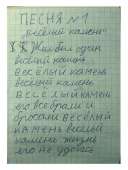 ПЕСНЯ №1
"весёлый камень"
Жил был один
весёлый камень
ВЕСЁЛЫЙ КАМЕНЬ
весёлый камень
ВЕСЁЛЫЙ КАМЕНЬ
его все брали и
бросали ВЕСЁЛЫЙ
КАМЕНЬ весёлый
камень жизнь
его не удалась